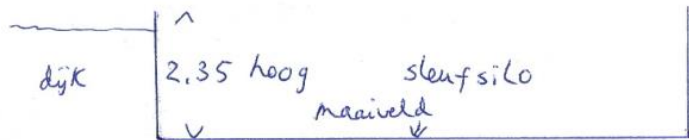 dijk 2.35 hoog sleufsilo
maaiveld